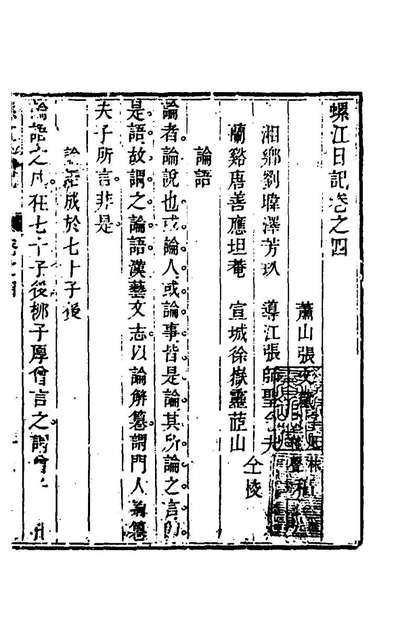 螺江日記卷之四
蕭山張文
湘鄉劉暐澤芳玖 導江張師聖
蘭谿唐善應坦菴 宣城徐嶽藍山
仝校
論語
論者論說也或論人或論事皆是論其所論之言則
是語故謂之論語漢藝文志以論解篡謂門人論篡
夫子所言非是
論語成於七十子後
論語之成在七十子後柳子厚曾言之謂曾子